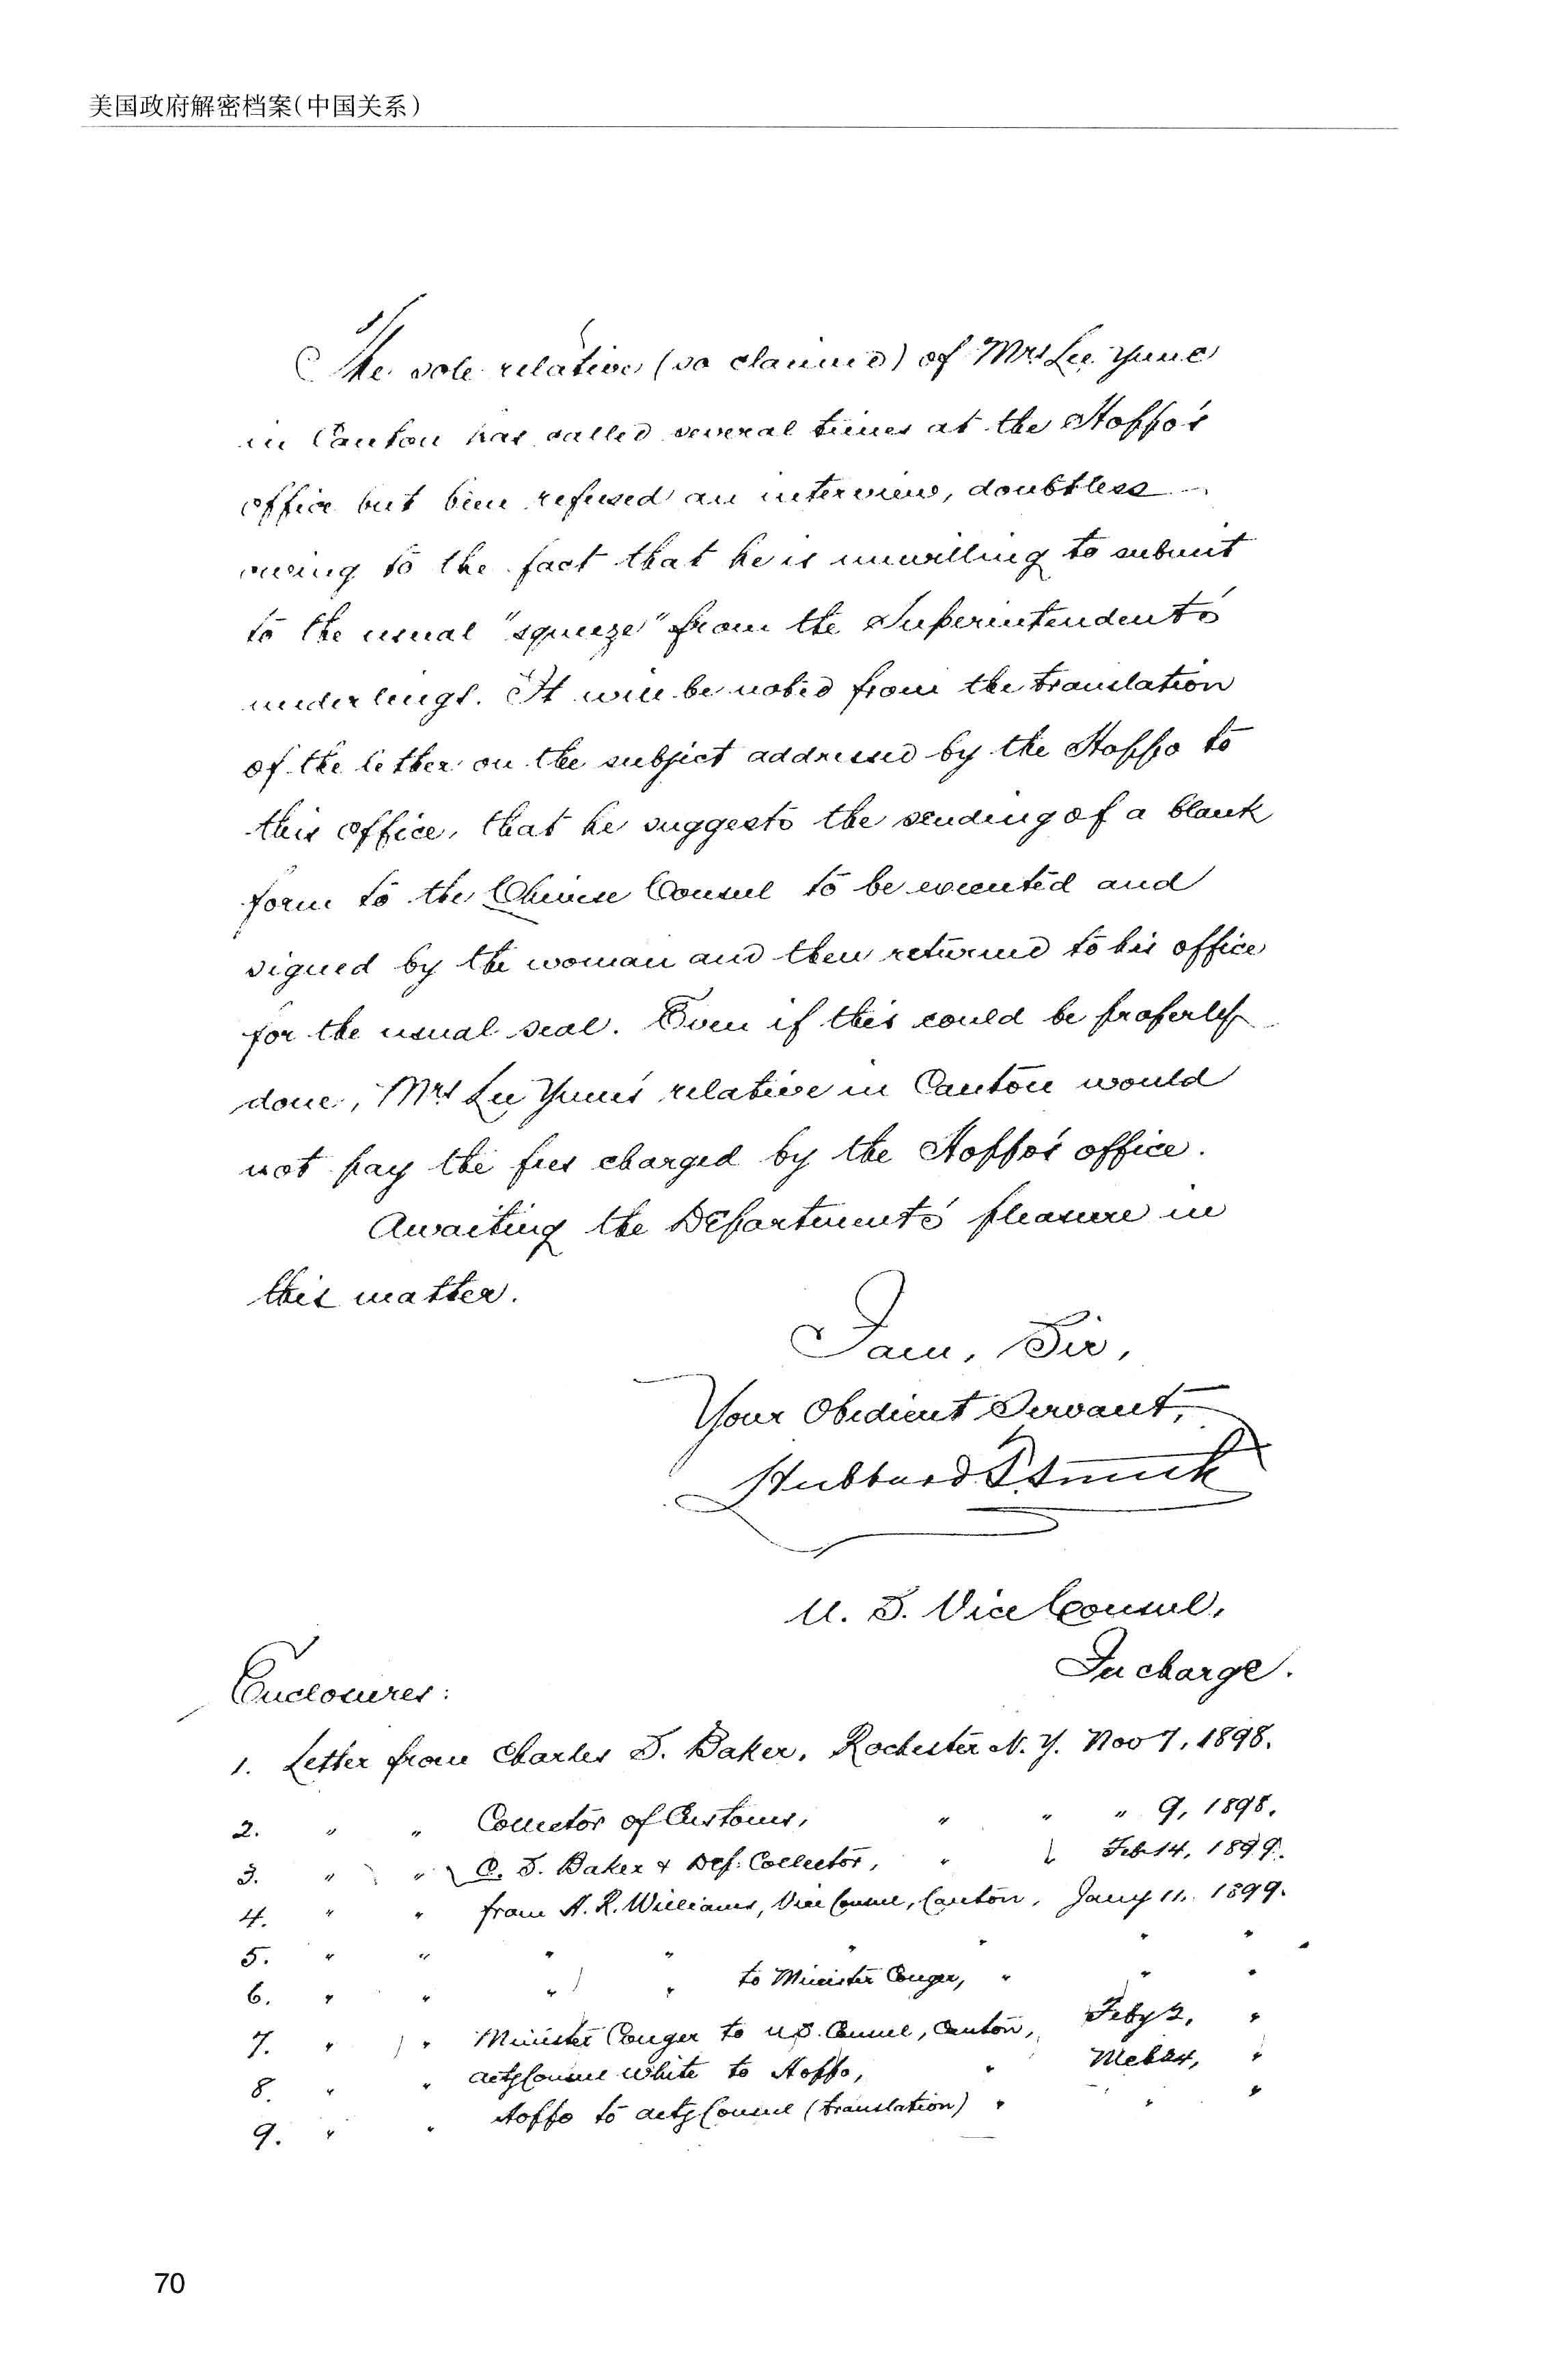 美国政府解密档案(中国关系)
The sole relative (so claimed) of Mrs Lee Yune
in Canton has called several times at the Hoppo's
office but been refused an interview, doubtless
owing to the fact that he is unwilling to submit
to the usual "squeeze" from the Superintendent's
underlings. It will be noted from the translation
of the letter on the subject addressed by the Hoppo to
this office, that he suggests the sending of a blank
form to the Chinese Consul to be executed and
signed by the woman and then returned to his office
for the usual seal. Even if this could be properly
done, Mrs Lee Yune's relative in Canton would
not pay the fees charged by the Hoppo's office.
Awaiting the Department's pleasure in
this matter.
I am, Sir,
Your Obedient Servant,
Hubbard T. Smith
U. S. Vice Consul,
In charge.
Enclosures:
1. Letter from Charles S. Baker, Rochester N. Y. Nov 7, 1898.
2. " " Collector of Customs, " " " 9, 1898.
3. " " C. S. Baker & Dep: Collector, " " Feb 14, 1899.
4. " " from H. R. Williams, Vice Consul, Canton, Jany 11, 1899.
5. " " " " " " " "
6. " " " " to Minister Conger, " " "
7. " " Minister Conger to U.S. Consul, Canton, Feby 2, "
8. " " actg Consul White to Hoppo, " Mch 24, "
9. " " Hoppo to actg Consul (translation) " " "
70